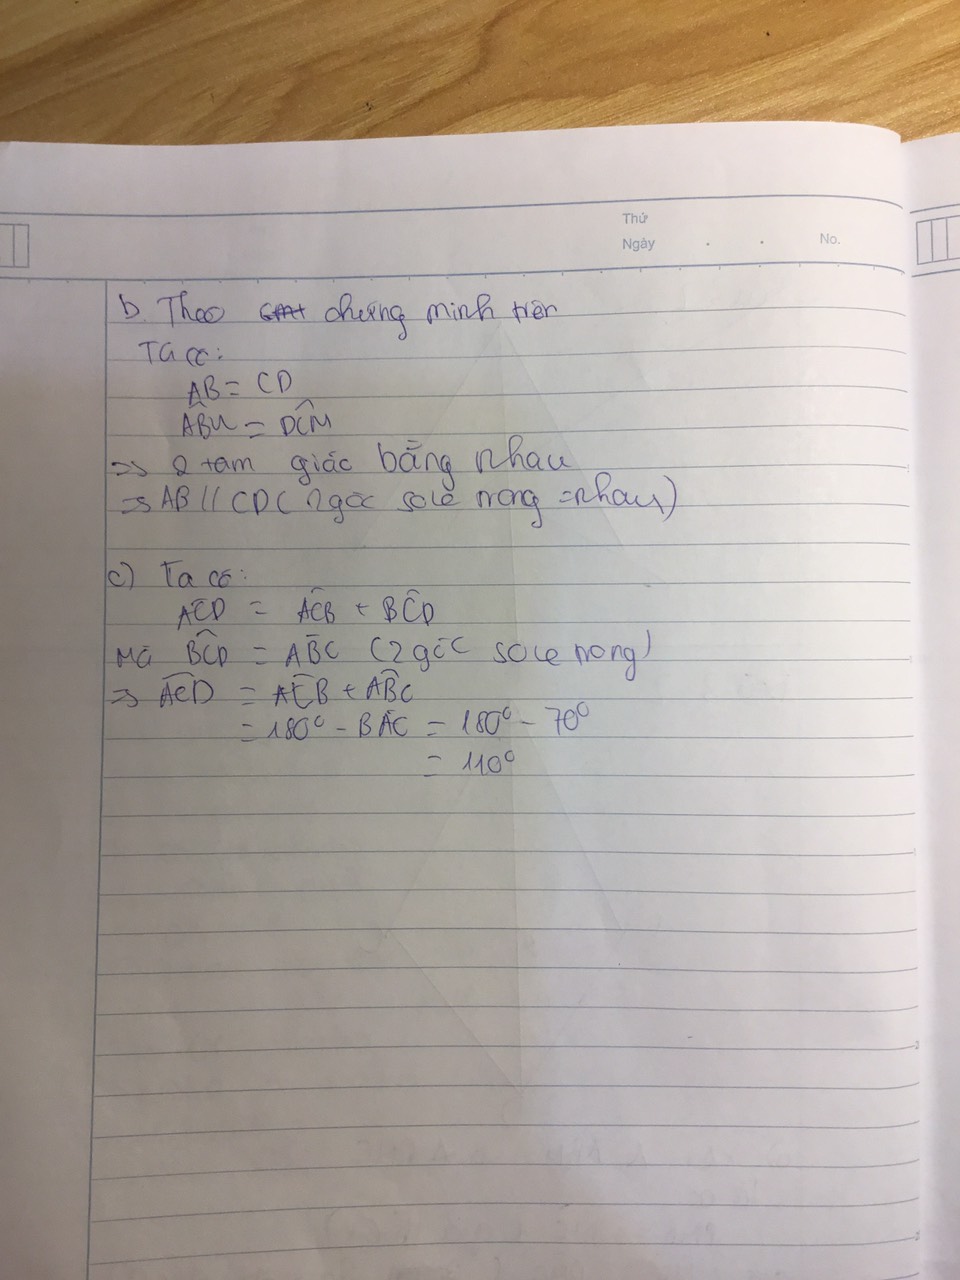 Thứ
Ngày . . No.
b. Theo chứng minh trên
Ta có:
AB = CD
ABM = DCM
=> 2 tam giác bằng nhau
=> AB // CD (2 góc so le trong = nhau)
c) Ta có:
ACD = ACB + BCD
Mà BCD = ABC (2 góc so le trong)
=> ACD = ACB + ABC
= 180° - BAC = 180° - 70°
= 110°